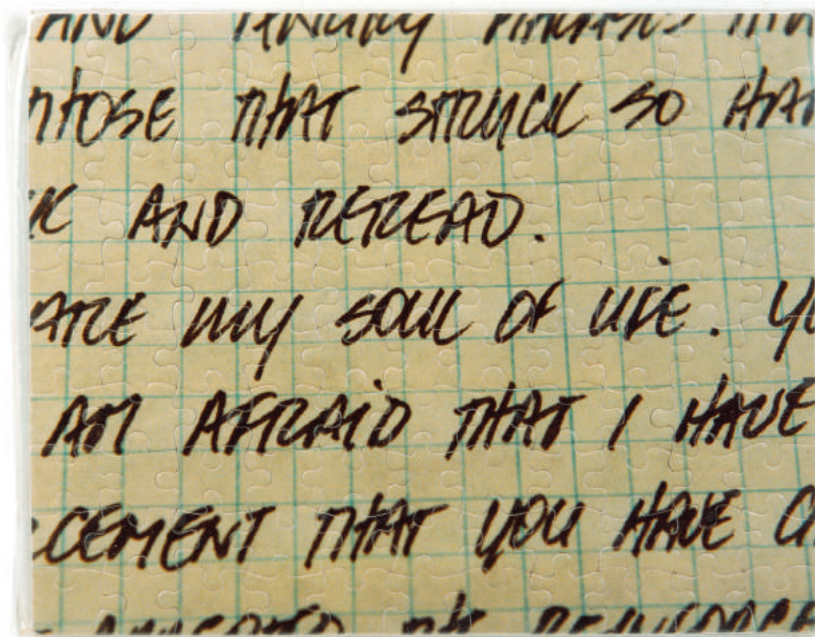 AND
THOSE THAT STRUCK SO
AND REREAD.
ARE MY SOUL OF LIFE.
AM AFRAID THAT I HAVE
CEMENT THAT YOU HAVE